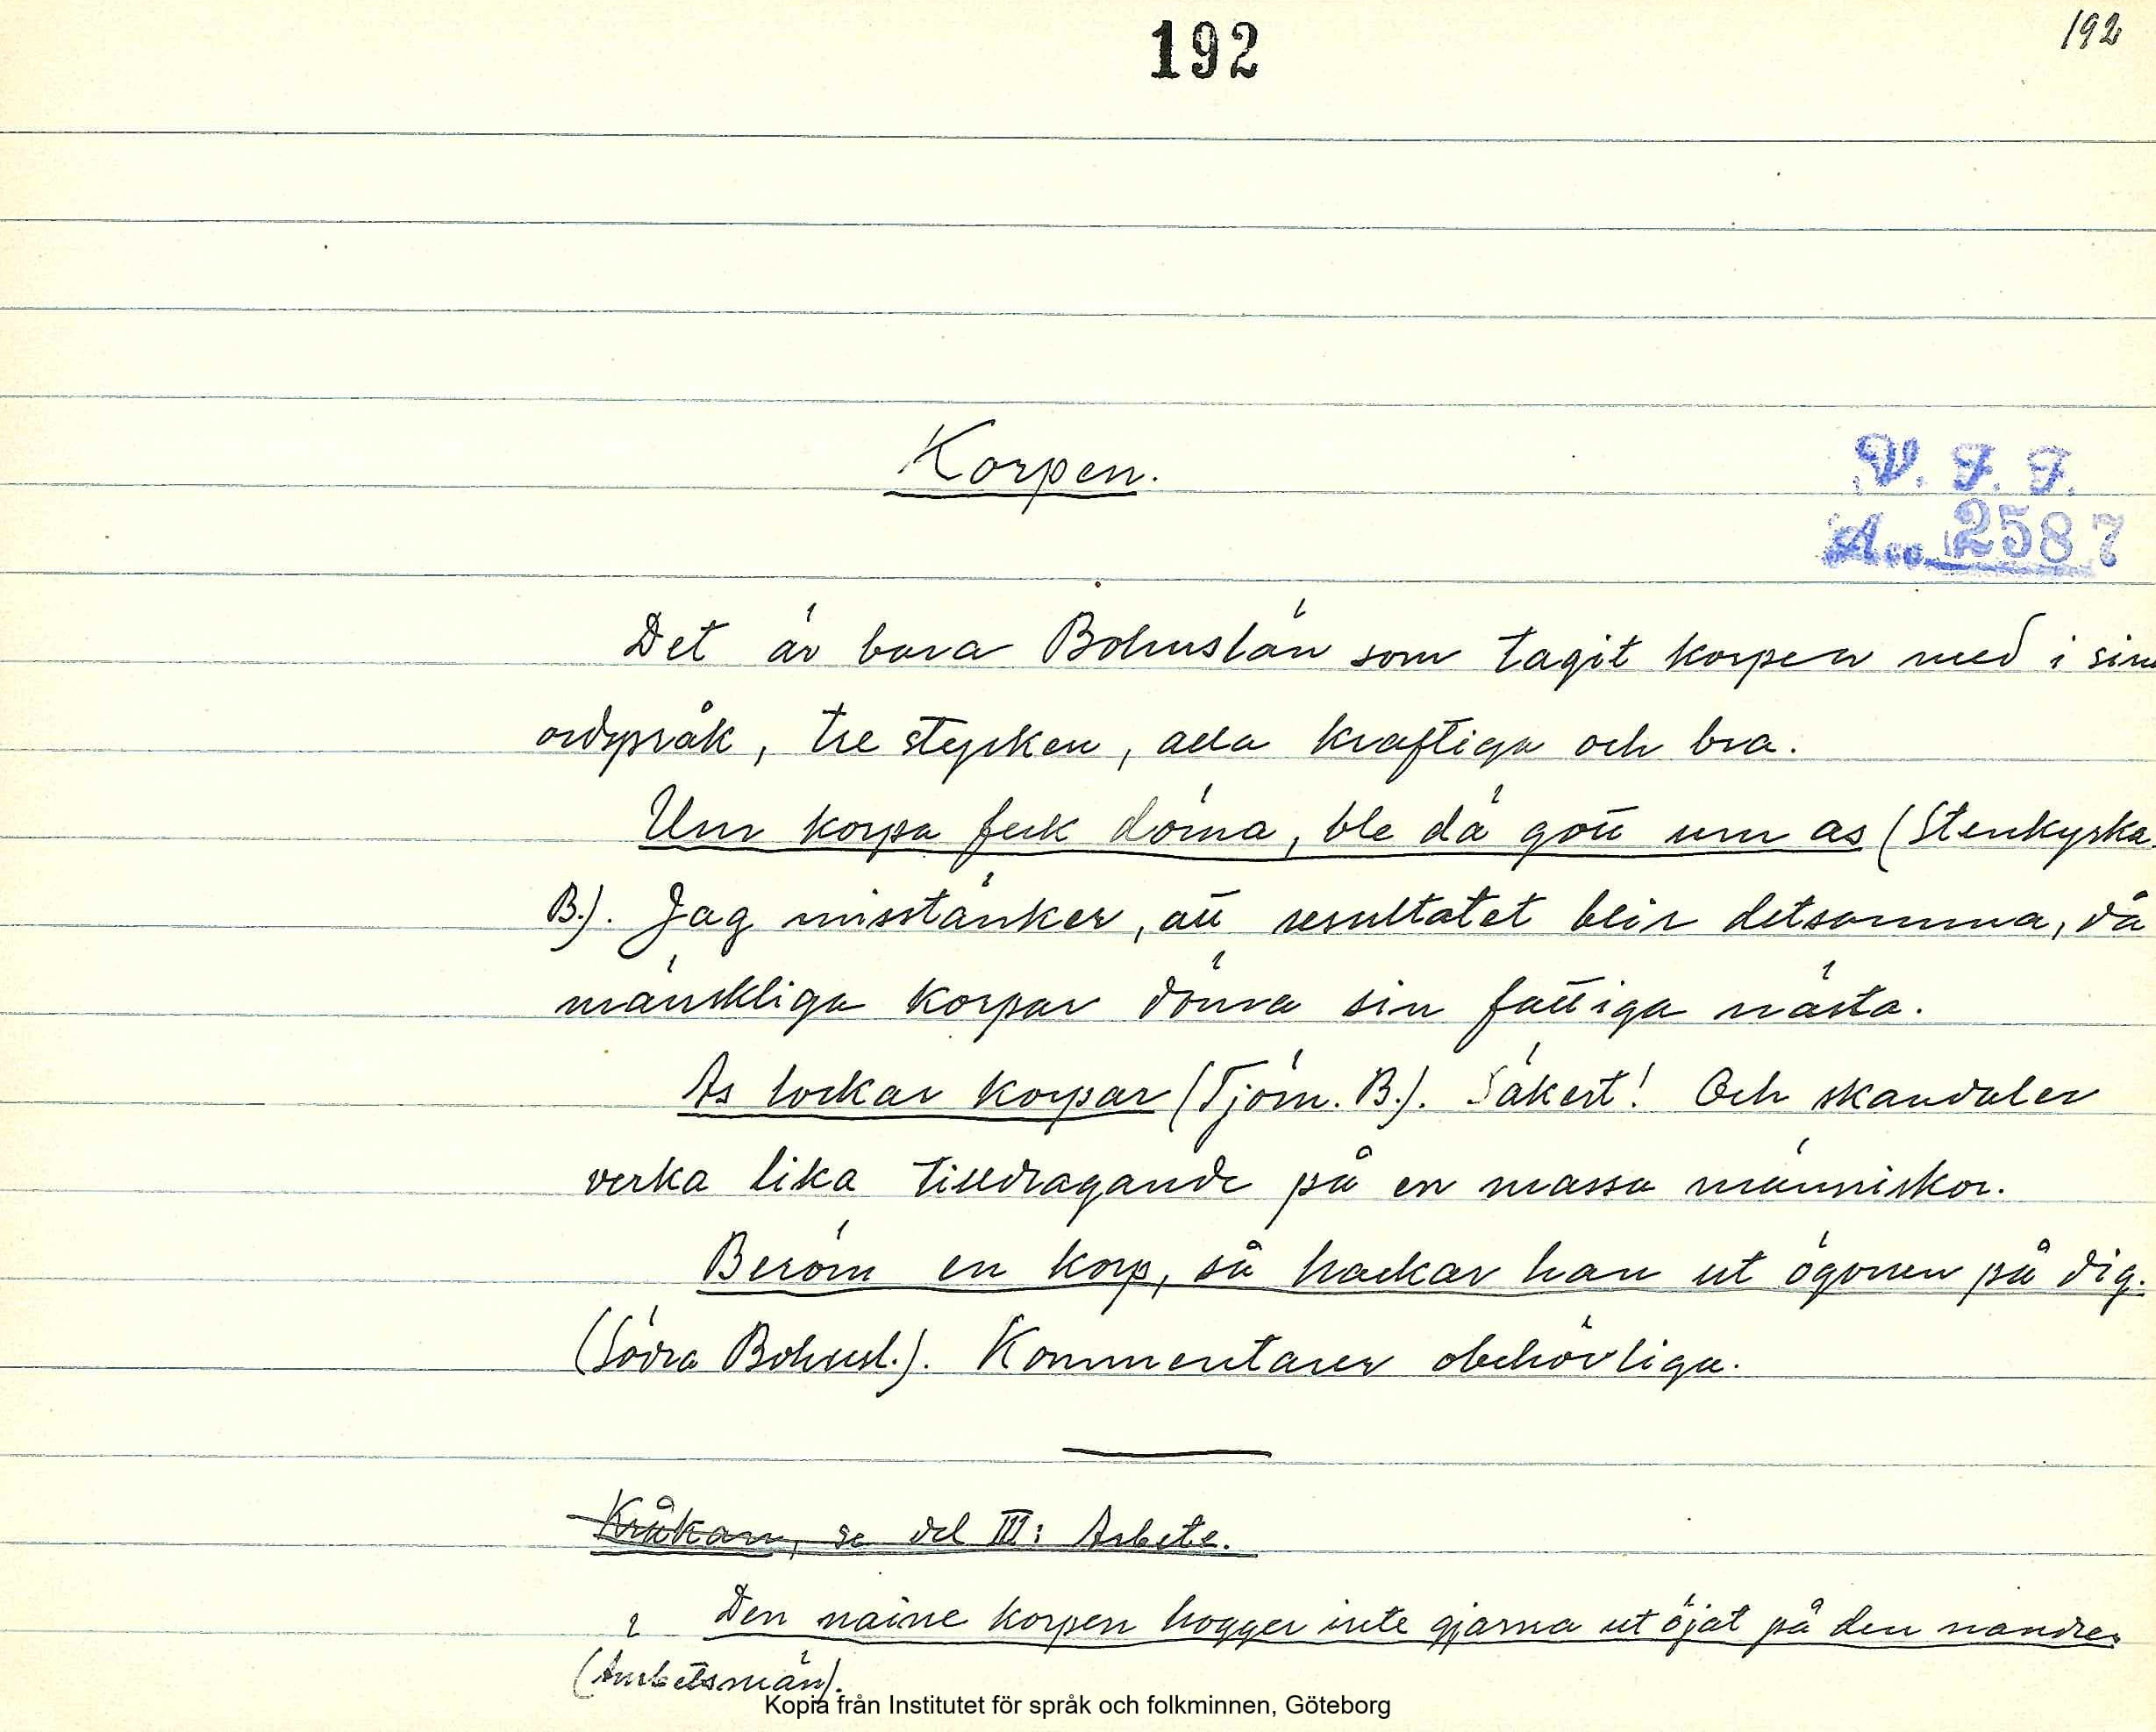 192
192
Korpen.
V. F. F.
Acc. 2587
Det är bara Bohuslän som tagit korpen med i sina
ordspråk, tre stycken, alla kraftiga och bra.
Um korpa feck döma, ble dä gott um as (Stenkyrka.
B.). Jag misstänker, att resultatet blir detsamma, då
mänskliga korpar döma sin fattiga nästa.
As lockar korpar (Tjörn. B.). Säkert! Och skandaler
verka lika tilldragande på en massa människor.
Beröm en korp, så hackar han ut ögonen på dig.
(Södra Bohusl.). Kommentarer obehövliga.
Kråkan, se del III: Arbete.
Den naine korpen hogger inte gjarna ut öjat på den nandres
(Ambetsmän).
Kopia från Institutet för språk och folkminnen, Göteborg